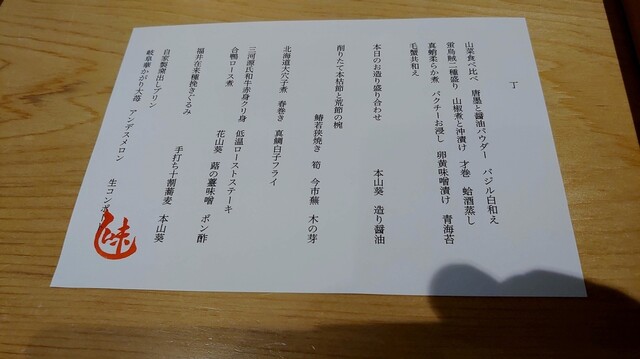 丁
山菜食べ比べ 唐墨と醤油パウダー バジル白和え
蛍烏賊二種盛り 山椒煮と沖漬け 才巻 蛤酒蒸し
真鮹柔らか煮 パクチーお浸し 卵黄味噌漬け 青海苔
毛蟹共和え
本日のお造り盛り合わせ 本山葵 造り醤油
削りたて本枯節と荒節の椀
鰆若狭焼き 筍 今市蕪 木の芽
北海道大穴子煮 春巻き 真鯛白子フライ
三河源氏和牛赤身クリ身 低温ローストステーキ
合鴨ロース煮 花山葵 蕗の薹味噌 ポン酢
福井在来種挽きぐるみ
手打ち十割蕎麦 本山葵
自家製窯出しプリン
岐阜華かがり火苺 アンデスメロン 生コンポ
味